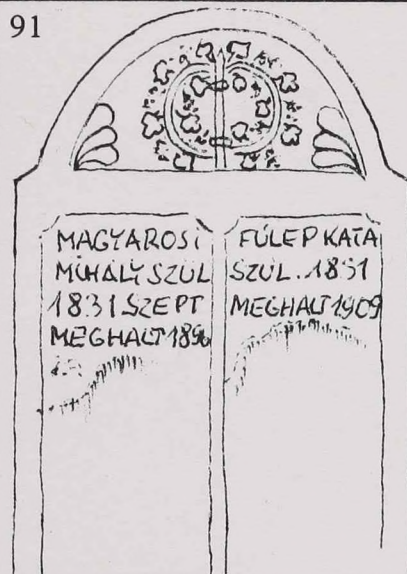 91
MAGYAROSI
MIHÁLY SZÜL
1831 SZEPT
MEGHALT 1896
FÜLEP KATA
SZÜL. 1831
MEGHALT 1909